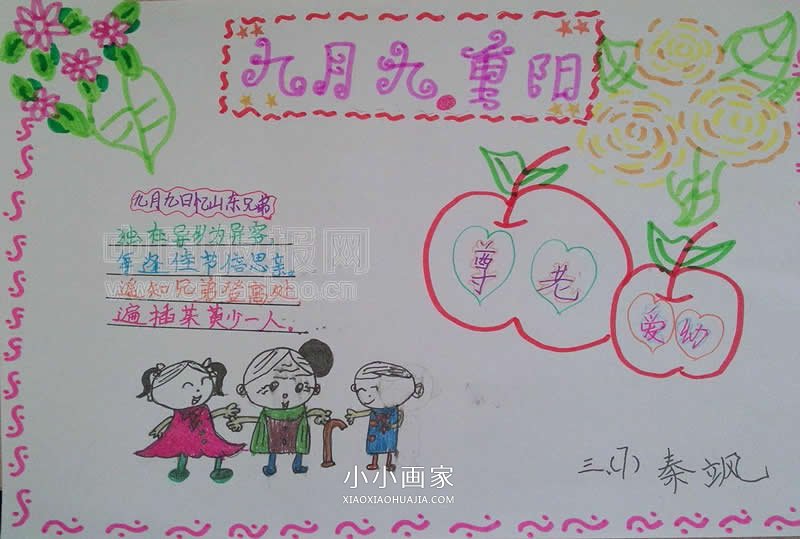 九月九.重阳
九月九日忆山东兄弟
独在异乡为异客
每逢佳节倍思亲。
遥知兄弟登高处
遍插茱萸少一人。
尊 老
爱 幼
三、(1) 秦飒
小小画家
XIAOXIAOHUAJIA.COM